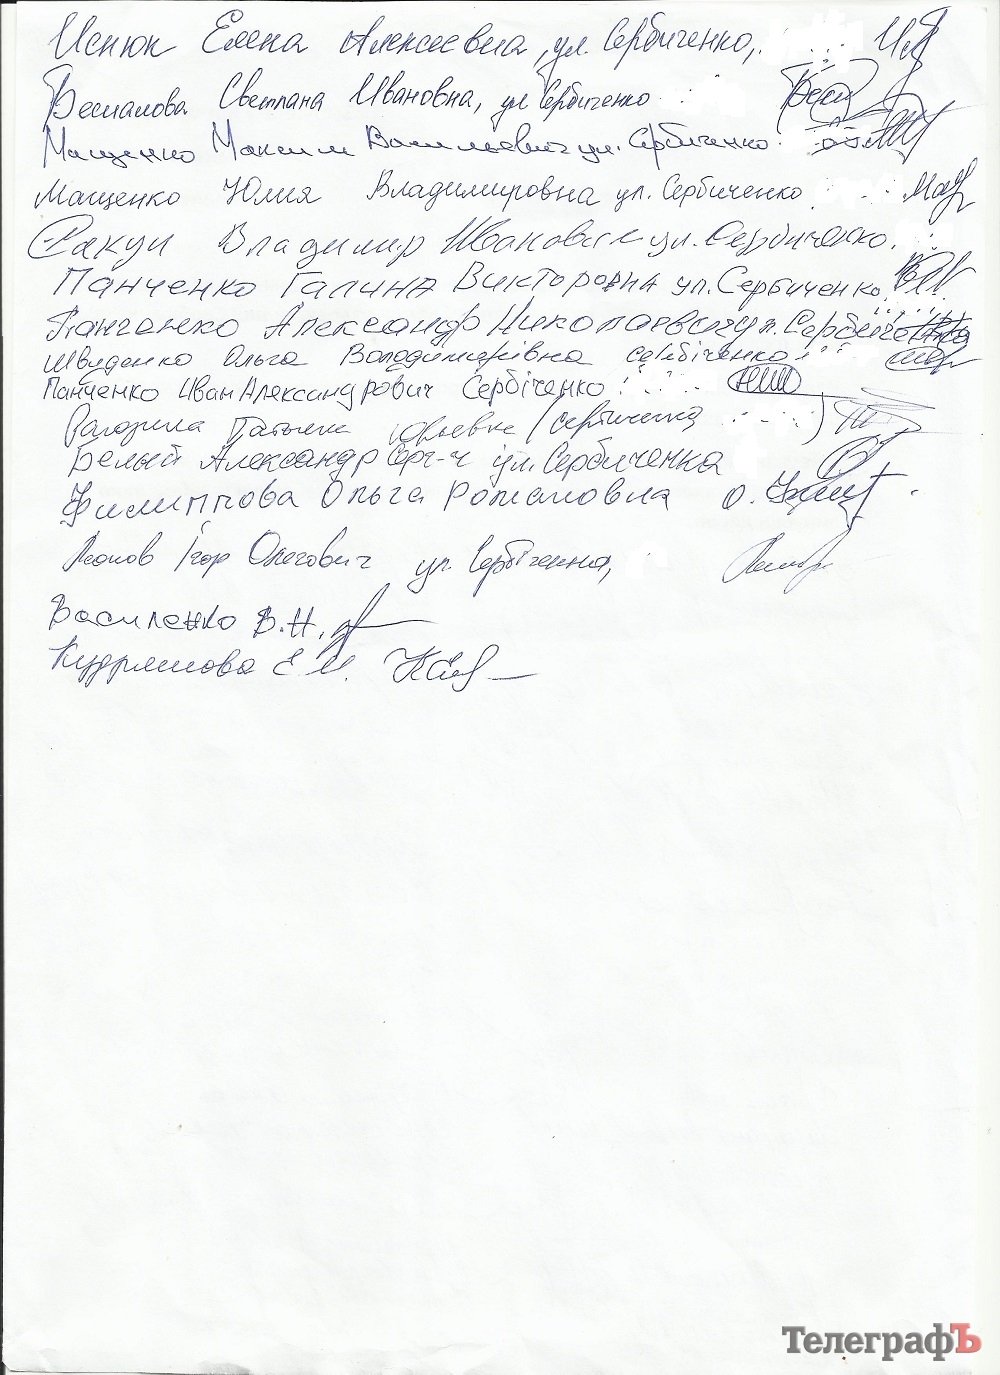 Иснюк Елена Алексеевна, ул. Сербиченко,
Беспалова Светлана Ивановна, ул Сербиченко
Мащенко Максим Васильевич ул. Сербиченко
Мащенко Юлия Владимировна ул. Сербиченко
Сакун Владимир Иванович ул. Сербиченко.
Панченко Галина Викторовна ул. Сербиченко
Панченко Александр Николаевич ул. Сербиченко
Швиденко Ольга Володимирівна Сербіченко
Панченко Иван Александрович Сербіченко
Рагозина Татьяна Юрьевна (Сербиченка )
Белый Александр Серг-ч ул. Сербиченка
Филиппова Ольга Романовна
Ігор Олегович ул. Сербіченка,
Василенко В.Н.
Кудряшова Е
ТелеграфЪ